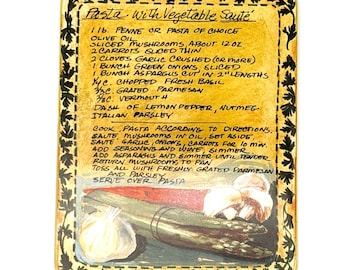 Pasta With Vegetable Sauté
1 lb PENNE OR PASTA OF CHOICE
OLIVE OIL
SLICED MUSHROOMS, ABOUT 12 OZ
2 CARROTS SLICED THIN
2 CLOVES GARLIC CRUSHED (OR MORE)
1 BUNCH GREEN ONIONS SLICED
1 BUNCH ASPARGUS CUT IN 2" LENGTHS
C. CHOPPED FRESH BASIL
C. GRATED PARMESAN
C. VERMOUTH
DASH OF LEMON PEPPER, NUTMEG-
ITALIAN PARSLEY
COOK PASTA ACCORDING TO DIRECTIONS.
SAUTE MUSHROOMS IN OIL, SET ASIDE.
SAUTE GARLIC, ONIONS, CARROTS FOR 10 MIN.
ADD SEASONING AND WINE, SIMMER.
ADD ASPARAGUS AND SIMMER UNTIL TENDER
RETURN MUSHROOMS TO PAN.
TOSS ALL WITH FRESHLY GRATED PARMESAN
AND PARSLEY.
SERVE OVER PASTA